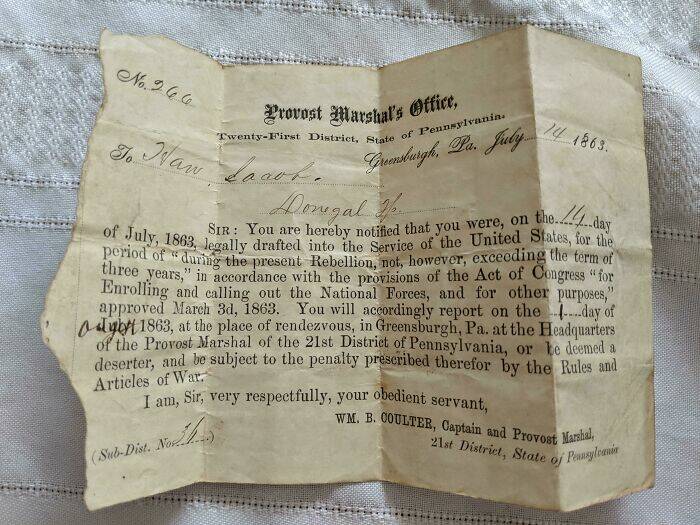 No. 266
Provost Marshal's Office,
Twenty-First District, State of Pennsylvania.
Greensburgh, Pa. July 14 1863.
To Haw, Jacob.
Donegal Tp
SIR: You are hereby notified that you were, on the 14 day
of July, 1863, legally drafted into the Service of the United States, for the
period of "during the present Rebellion, not, however, exceeding the term of
three years," in accordance with the provisions of the Act of Congress "for
Enrolling and calling out the National Forces, and for other purposes,"
approved March 3d, 1863. You will accordingly report on the 1 day of
July, 1863, at the place of rendezvous, in Greensburgh, Pa. at the Headquarters
of the Provost Marshal of the 21st District of Pennsylvania, or be deemed a
deserter, and be subject to the penalty prescribed therefor by the Rules and
Articles of War.
I am, Sir, very respectfully, your obedient servant,
WM. B. COULTER, Captain and Provost Marshal,
21st District, State of Pennsylvania
(Sub-Dist. No. )